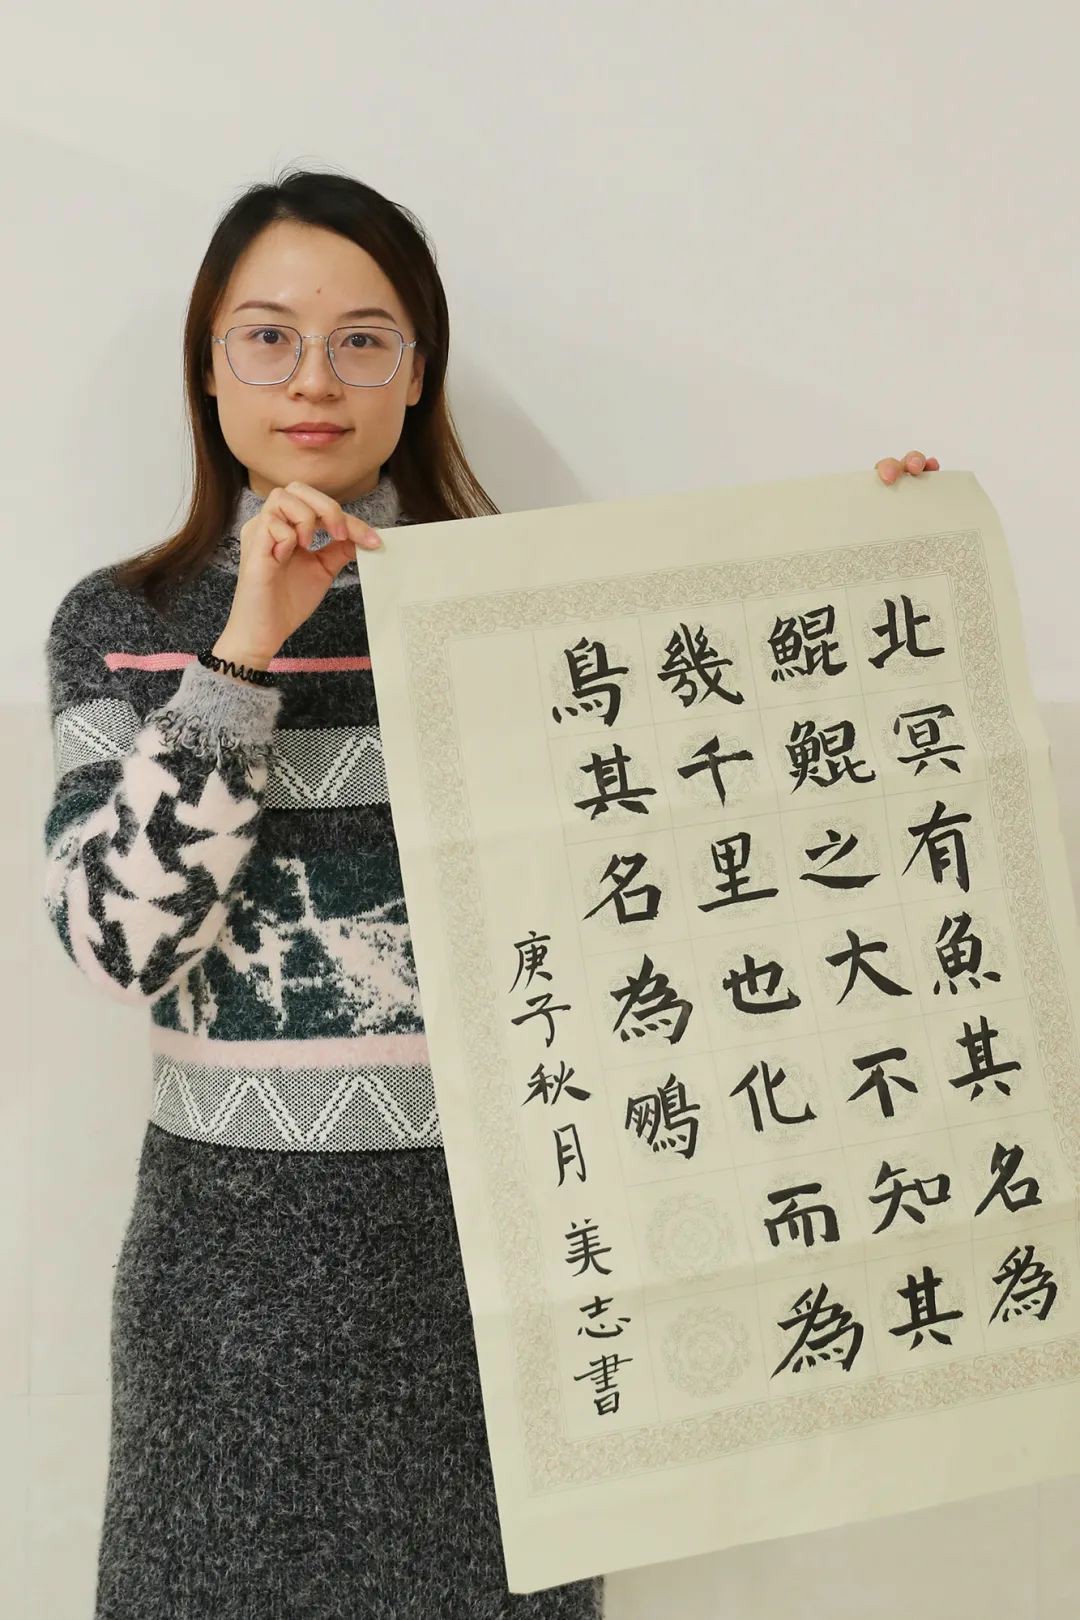 北冥有魚其名為
鯤鯤之大不知其
幾千里也化而為
鳥其名為鵬
庚子秋月美志書